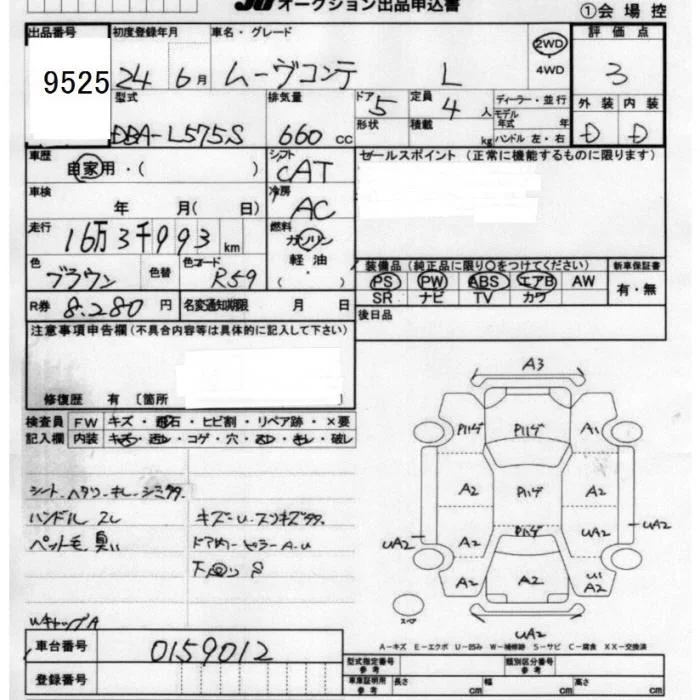 オークション出品申込書
①会場控
出品番号 初度登録年月 車名・グレード 評価点
9525 24年6月 ムーヴコンテ L 2WD 4WD 3
型式 排気量 ドア 定員 ディーラー・並行 外装 内装
DBA-L575S 660cc 5 4人 モデル年式 年 D D
形状 積載 kg ハンドル 左・右
車歴 自家用・( ) シフト CAT セールスポイント (正常に機能するものに限ります)
車検 年 月( 日) 冷房 AC
走行 16万3千993km 燃料 ガソリン 軽油
色 ブラウン 色替 色コード R59
装備品(純正品に限り○をつけてください) 新車保証書
PS PW ABS エアB AW 有・無
SR ナビ TV カワ
R券 8.280円 名変通知期限 月 日 後日品
注意事項申告欄(不具合内容等は具体的に記入して下さい)
修復歴 有 〔箇所
検査員 FW キズ・飛石・ヒビ割・リペア跡・×要
記入欄 内装 キズ・汚レ・コゲ・穴・スレ・キレ・破レ
シート ヘタリ・キレ・シミ多
ハンドル スレ キズ・U・スリキズ多
ペット毛 臭い ドア内・ピラーA・U
下回り S
WキャップA
A3
Pハゲ Pハゲ A1
A2 Pハゲ A2
UA2 A2 Pハゲ UA2 UA2
A2 A2 U1 A2
スペア
UA2
A-キズ E-エクボ U-凹み W-補修跡 S-サビ C-腐食 XX-交換済
車台番号 0159012
登録番号
型式指定番号 参考 類別区分番号 参考
車庫証明用 参考 長さ cm 幅 cm 高さ cm